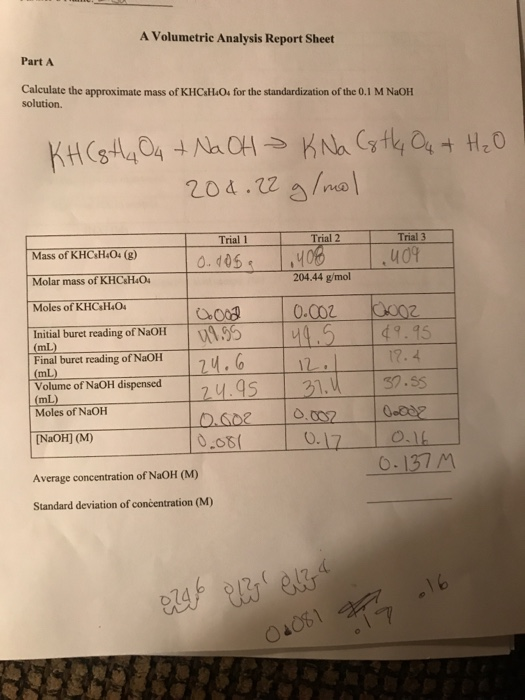 A Volumetric Analysis Report Sheet
Part A
Calculate the approximate mass of KHC₈H₄O₄ for the standardization of the 0.1 M NaOH
solution.
KHC8H4O4 + NaOH → KNaC8H4O4 + H2O
204.22 g/mol
Trial 1 Trial 2 Trial 3
Mass of KHC₈H₄O₄ (g) .408 .409
Molar mass of KHC₈H₄O₄ 204.44 g/mol
Moles of KHC₈H₄O₄ 0.002 0.002 0.002
Initial buret reading of NaOH
(mL) 49.55 49.5 49.95
Final buret reading of NaOH
(mL) 24.6 12.1 12.4
Volume of NaOH dispensed
(mL) 24.95 37.4 37.55
Moles of NaOH 0.002 0.002 0.002
[NaOH] (M) 0.081 0.17 0.16
Average concentration of NaOH (M) 0.137 M
Standard deviation of concentration (M)
0.081 .17 .16